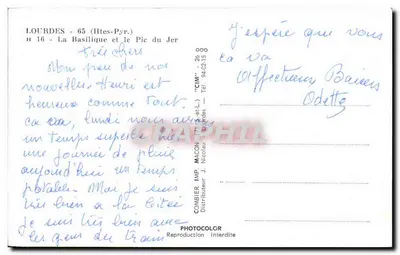 LOURDES - 65 (Htes-Pyr.)
H 16 - La Basilique et le Pic du Jer
très chers
Mon peu de nos
nouvelles Henri est
heureux comme tout.
ca va, lundi nous avions
un temps superbe hier
une journée de pluie
aujourd'hui un temps
potable. Moi je suis
très bien a la
je suis très bien avec
les gens du train
J'espère que vous
ca va
affectueux Baisers
Odette
COMBIER IMP. MACON (S.-et-L.) "CIM"
Distributeur J. Nicolas Lourdes - Tél. 94-03-15
26 000
PHOTOCOLOR
Reproduction Interdite
CPAPHIL